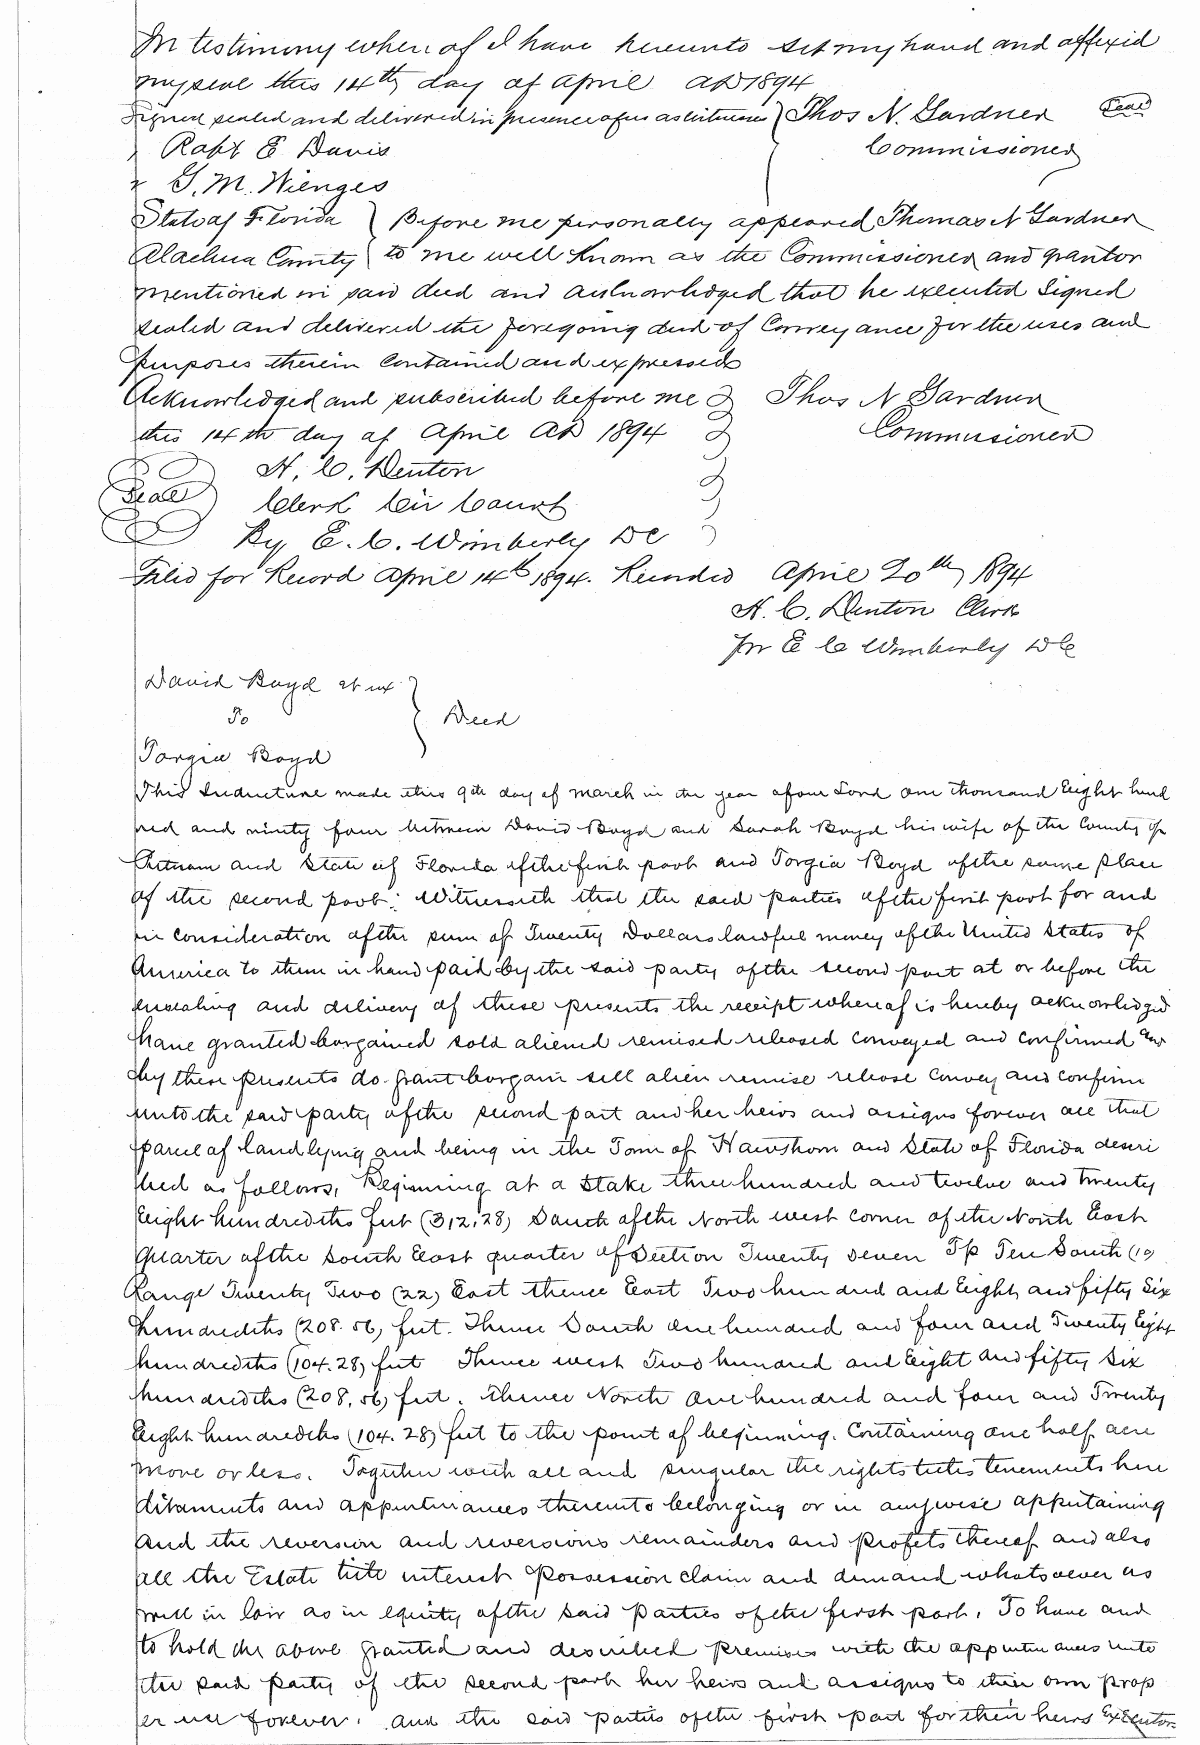 In testimony whereof I have hereunto set my hand and affixed
my seal this 14th day of April AD 1894
Signed sealed and delivered in presence of us as witnesses } Thos N. Gardner (Seal)
Robt E Davis Commissioner
G. M. Wienges
State of Florida } Before me personally appeared Thomas N Gardner
Alachua County } to me well known as the Commissioner and grantor
mentioned in said deed and acknowledged that he executed signed
sealed and delivered the foregoing deed of Conveyance for the uses and
purposes therein contained and expressed
Acknowledged and subscribed before me } Thos N Gardner
this 14th day of April AD 1894 Commissioner
H. C. Denton
(Seal) Clerk Cir Court
By E. C. Wimberly DC
Filed for Record April 14th 1894. Recorded April 20th 1894
H. C. Denton Clerk
pr E C Wimberly DC
David Boyd et ux
To } Deed
Torgia Boyd
This Indenture made this 9th day of March in the year of our Lord one thousand Eight hund
red and ninty four between David Boyd and Sarah Boyd his wife of the County of
Putnam and State of Florida of the first part and Torgia Boyd of the same place
of the second part: Witnesseth that the said parties of the first part for and
in consideration of the sum of Twenty Dollars lawful money of the United States of
America to them in hand paid by the said party of the second part at or before the
ensealing and delivery of these presents the receipt whereof is hereby acknowledged
have granted bargained sold aliened remised released conveyed and confirmed and
by these presents do grant bargain sell alien remise release convey and confirm
unto the said party of the second part and her heirs and assigns forever all that
parcel of land lying and being in the Town of Hawthorn and State of Florida descri
bed as follows, Beginning at a Stake three hundred and twelve and twenty
Eight hundredths feet (312.28) South of the North west corner of the North East
quarter of the South East quarter of Section Twenty seven Tp Ten South (10)
Range Twenty Two (22) East thence East Two hundred and Eight and fifty Six
hundredths (208.56) feet. Thence South One hundred and four and Twenty Eight
hundredths (104.28) feet Thence west Two hundred and Eight and fifty Six
hundredths (208.56) feet. thence North One hundred and four and Twenty
Eight hundredths (104.28) feet to the point of beginning. Containing one half acre
more or less. Together with all and singular the rights titles tenements here
ditaments and appurtenances thereunto belonging or in anywise appertaining
and the reversion and reversions remainders and profits thereof and also
all the Estate title interest possession claim and demand whatsoever as
well in law as in equity of the said parties of the first part. To have and
to hold the above granted and described premises with the appurtenances unto
the said party of the second part her heirs and assigns to their own prop
er use forever. and the said parties of the first part for their heirs Executors